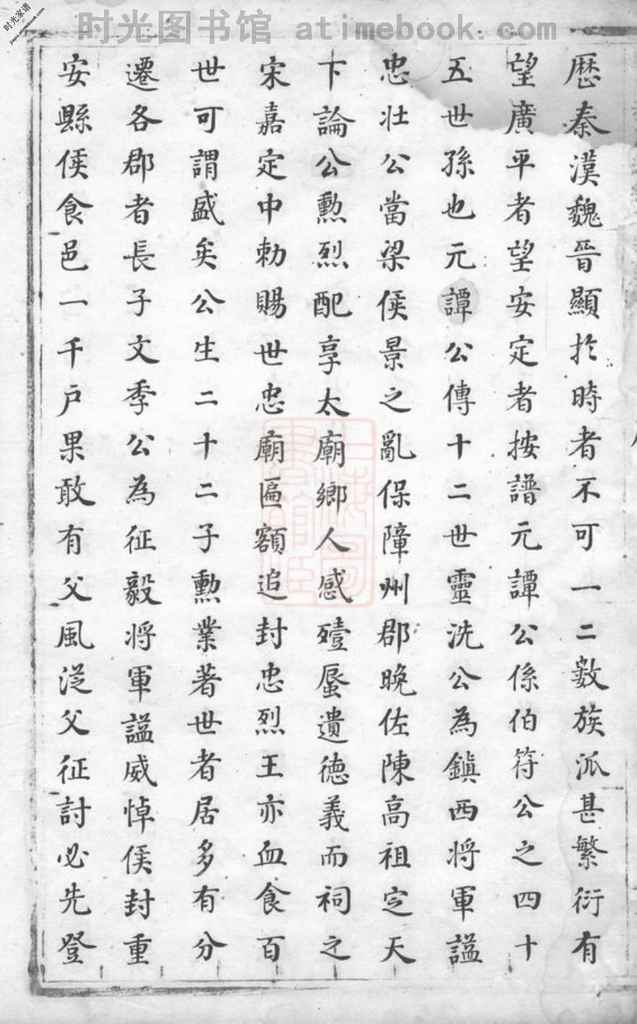 时光图书馆 atimebook.com
时光家谱
歴秦漢魏晉顯於時者不可一二數族派甚繁衍有
望廣平者望安定者按譜元譚公係伯符公之四十
五世孫也元譚公傳十二世靈洗公為鎮西將軍謚
忠壯公當梁侯景之亂保障州郡晚佐陳高祖定天
下論公勲烈配享太廟鄉人感殪蜃遺德義而祠之
宋嘉定中勅賜世忠廟匾額追封忠烈王亦血食百
世可謂盛矣公生二十二子勲業著世者居多有分
遷各郡者長子文季公為征毅將軍謚威悼侯封重
安縣侯食邑一千戶果敢有父風從父征討必先登